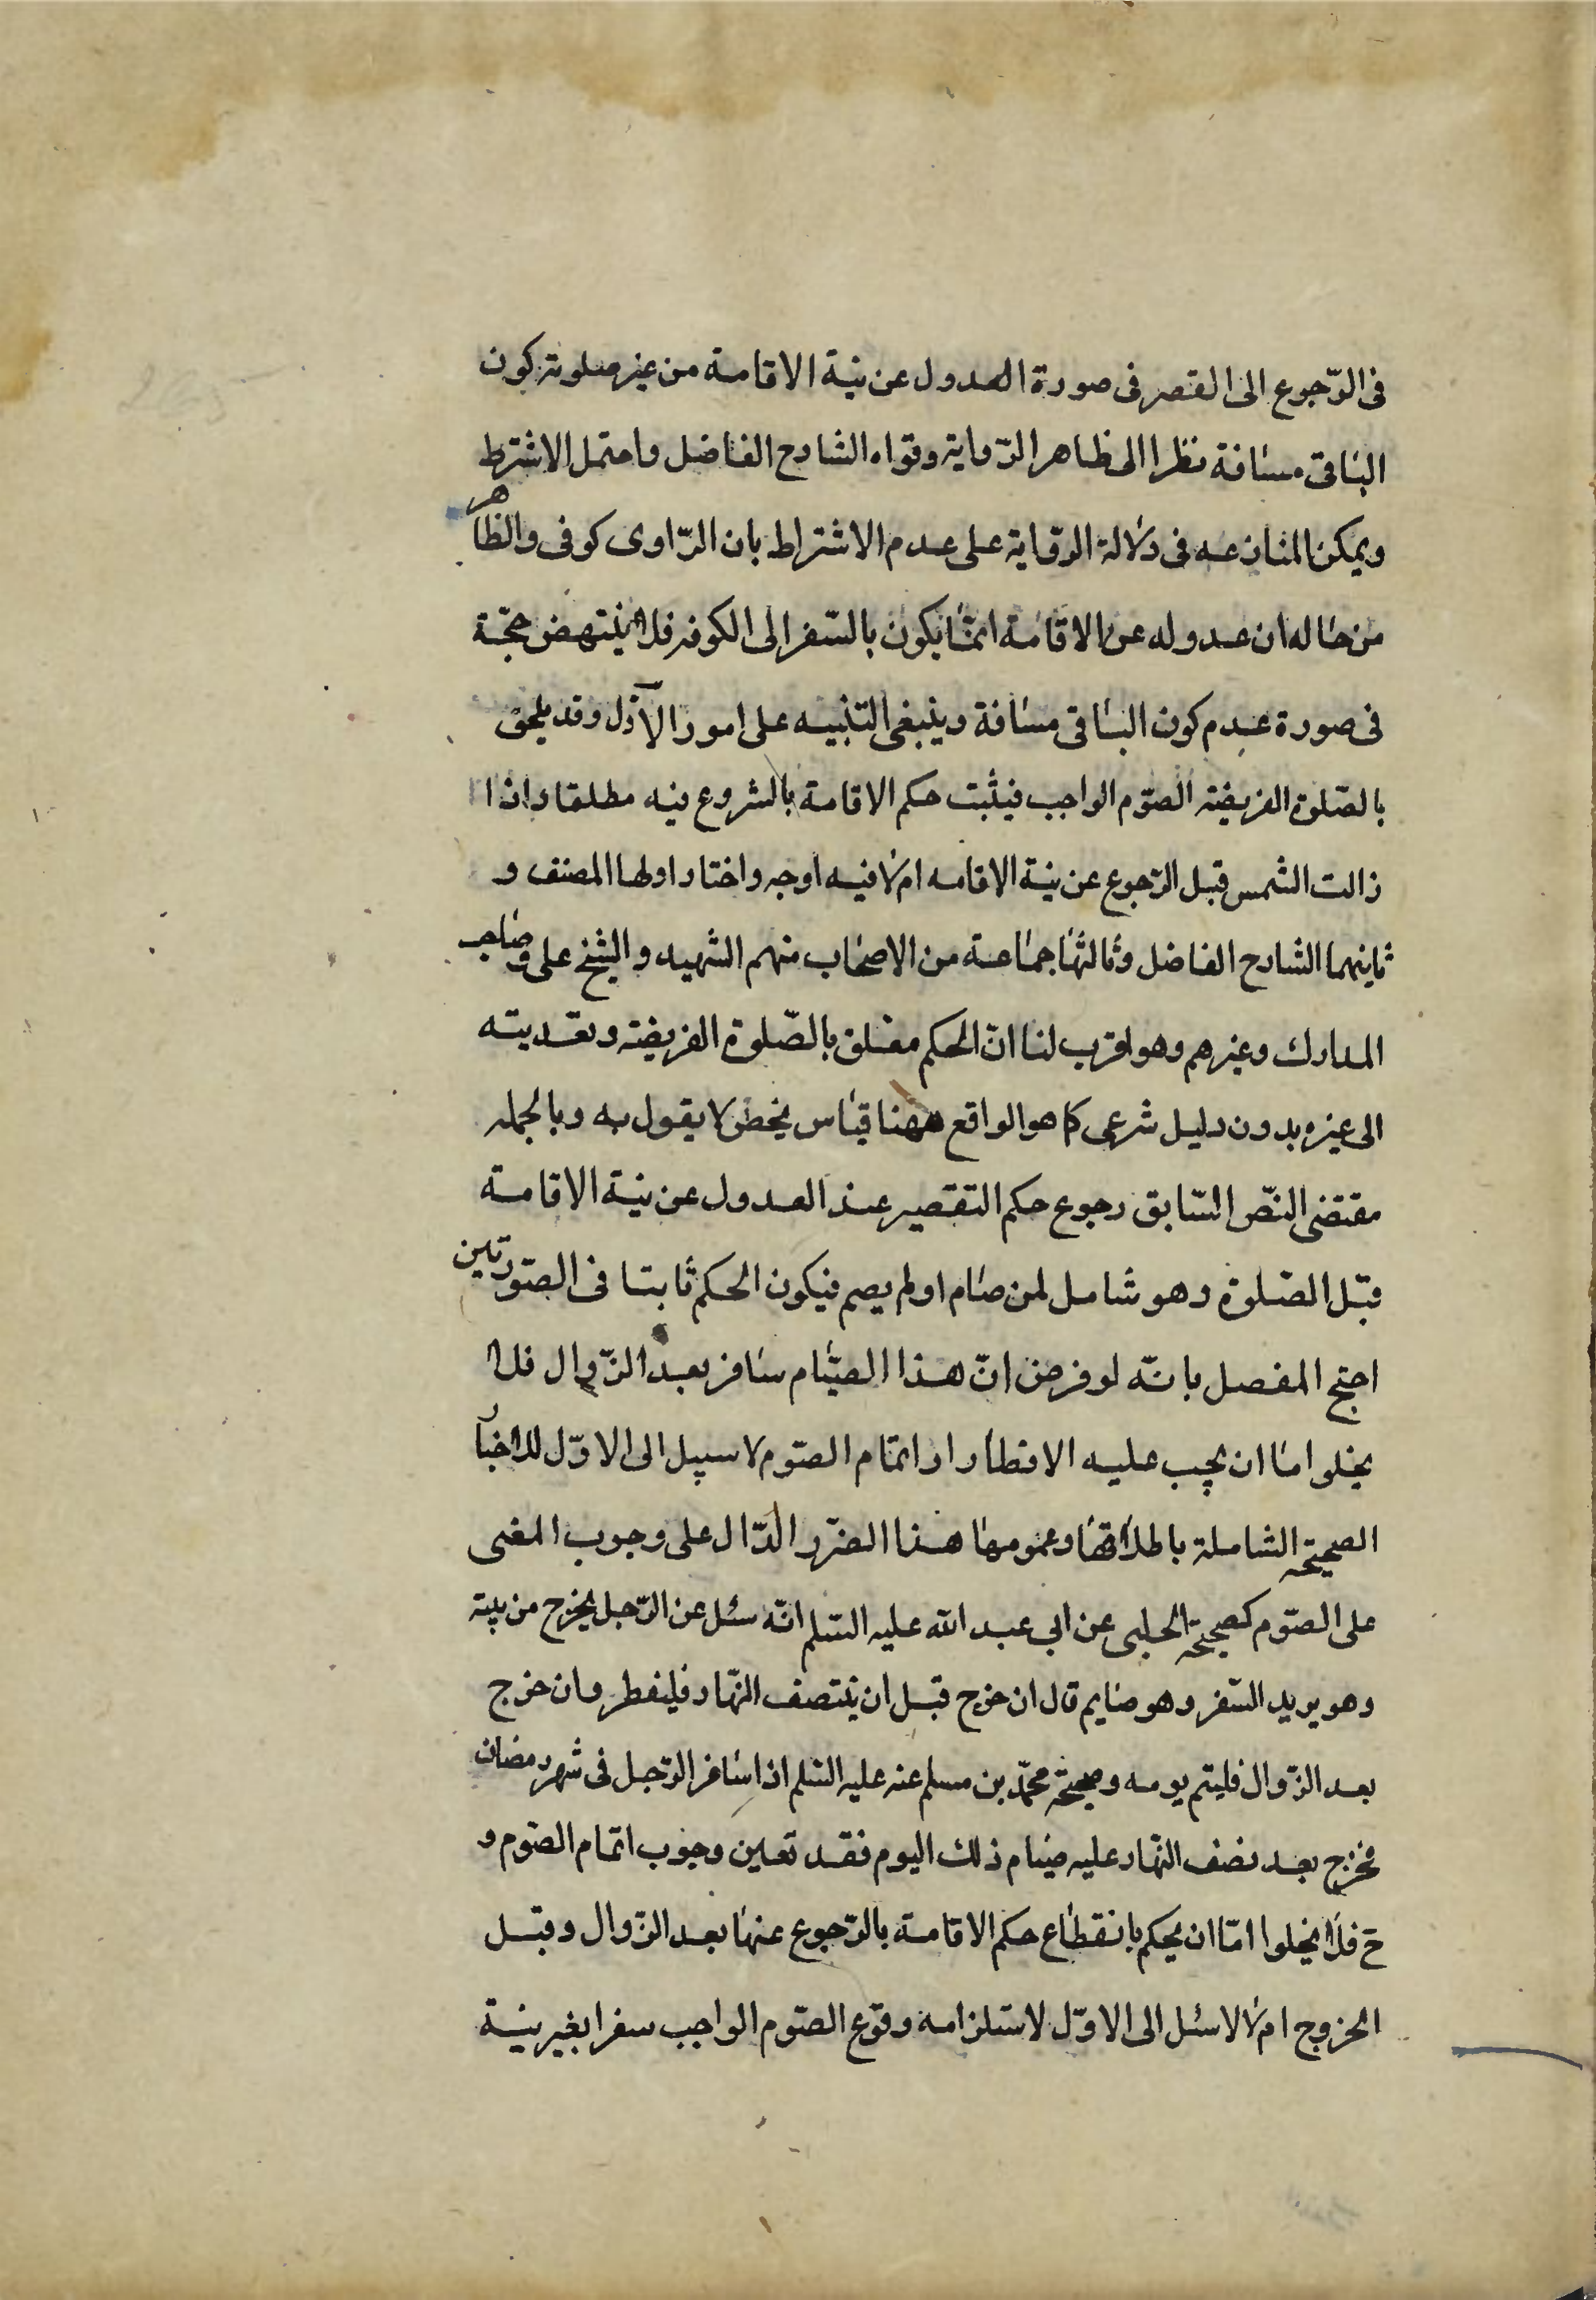 فى الرّجوع الى القصر فى صورة العدول عن نية الاقامة من غير صلوته كون
الباقى مسافة نظرا الى ظاهر الرّواية وقواه الشارح الفاضل واحتمل الاشترط
ويمكن المنازعه فى دلالة الرّواية على عدم الاشتراط بان الرّاوى كوفى والظاهر
من حاله ان عدوله عن الاقامة انمّا يكون بالسّفر الى الكوفه فلا ينتهض حجّة
فى صورة عدم كون الباقى مسافة وينبغى التنبيه على امور الاوّل وقد يلحق
بالصّلوة الفريضه الصّوم الواجب فيثبت حكم الاقامة بالشروع فيه مطلقا واذا
زالت الشمس قبل الرّجوع عن نية الاقامه ام لا فيه اوجه واختار اولها المصنف و
ثانيهما الشارح الفاضل وثالثها جماعة من الاصحاب منهم الشهيد والشيخ على وصاحب
المدارك وغيرهم وهو اقرب لنا انّ الحكم معلق بالصّلوة الفريضه وتعديته
الى غيره بدون دليل شرعى كما هو الواقع ههنا قياس محض لا يقول به وبالجمله
مقتضى النّص السّابق رجوع حكم التقصير عند العدول عن نية الاقامة
قبل الصّلوة وهو شامل لمن صام او لم يصم فيكون الحكم ثابتا فى الصّورتين
احتج المفصل بانّه لو فرض انّ هذا الصّيام سافر بعد الزّوال فلا
يخلو امّا ان يجب عليه الافطار او اتمام الصّوم لا سبيل الى الاوّل للاخبار
الصحيحة الشاملة باطلاقها وعمومها هذا الضّرر الدّال على وجوب المضى
على الصّوم كصحيحة الحلبى عن ابي عبد الله عليه السّلم انّه سئل عن الرّجل يخرج من بيته
وهو يريد السّفر وهو صايم قال ان خرج قبل ان ينتصف النّهار فليفطر وان خرج
بعد الزّوال فليتم يومه وصحيحة محمّد بن مسلم عنه عليه السّلم اذا سافر الرّجل فى شهر رمضان
فخرج بعد نصف النّهار عليه صيام ذلك اليوم فقد تعين وجوب اتمام الصّوم و
ح فلا يخلوا امّا ان يحكم بانقطاع حكم الاقامة بالرّجوع عنها بعد الزّوال وقبل
الخروج ام لا لاسئل الى الاوّل لاستلزامه وقوع الصّوم الواجب سفرا بغير نية